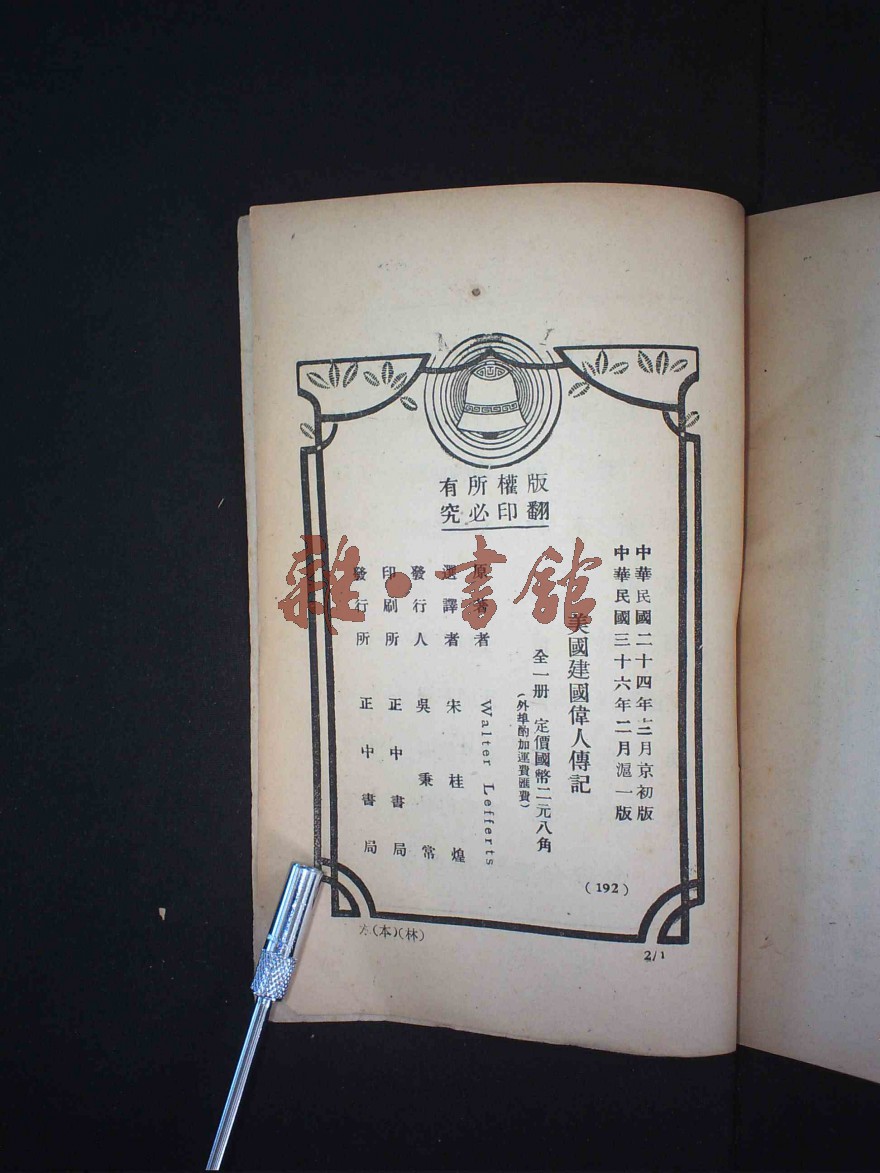 版權所有
翻印必究
中華民國二十四年十二月京初版
中華民國三十六年二月滬一版
美國建國偉人傳記
全一册 定價國幣二元八角
(外埠酌加運費匯費)
原著者 Walter Lefferts
選譯者 宋桂煌
發行人 吳秉常
印刷所 正中書局
發行所 正中書局
(192)
(本)(林)
2/1
雜·書館